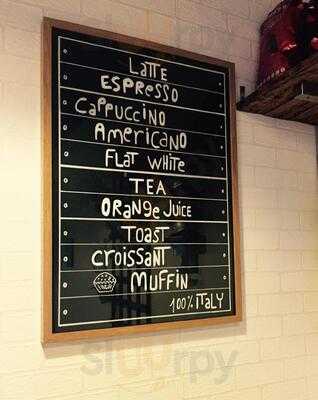 Latte
Espresso
Cappuccino
Americano
Flat White
Tea
Orange Juice
Toast
Croissant
Muffin
100% Italy
sluurpy